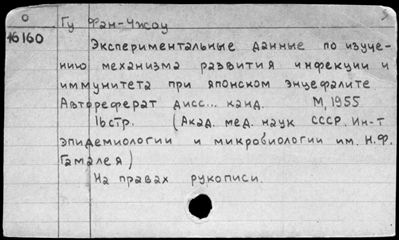 О
Гу Фан-Чжоу
16160
Экспериментальные данные по изуче-
нию механизма развития инфекции и
иммунитета при японском энцефалите
Автореферат дисс... канд. М, 1955
16стр. (Акад. мед. наук СССР. Ин-т
эпидемиологии и микробиологии им. Н.Ф.
Гамалея)
На правах рукописи.